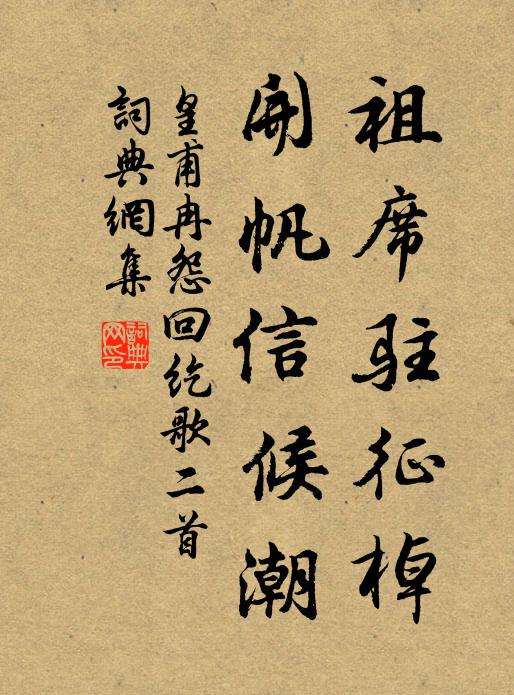 祖席駐征棹
開帆信候潮
皇甫冉怨回紇歌二首
詞典網集
詞典网印